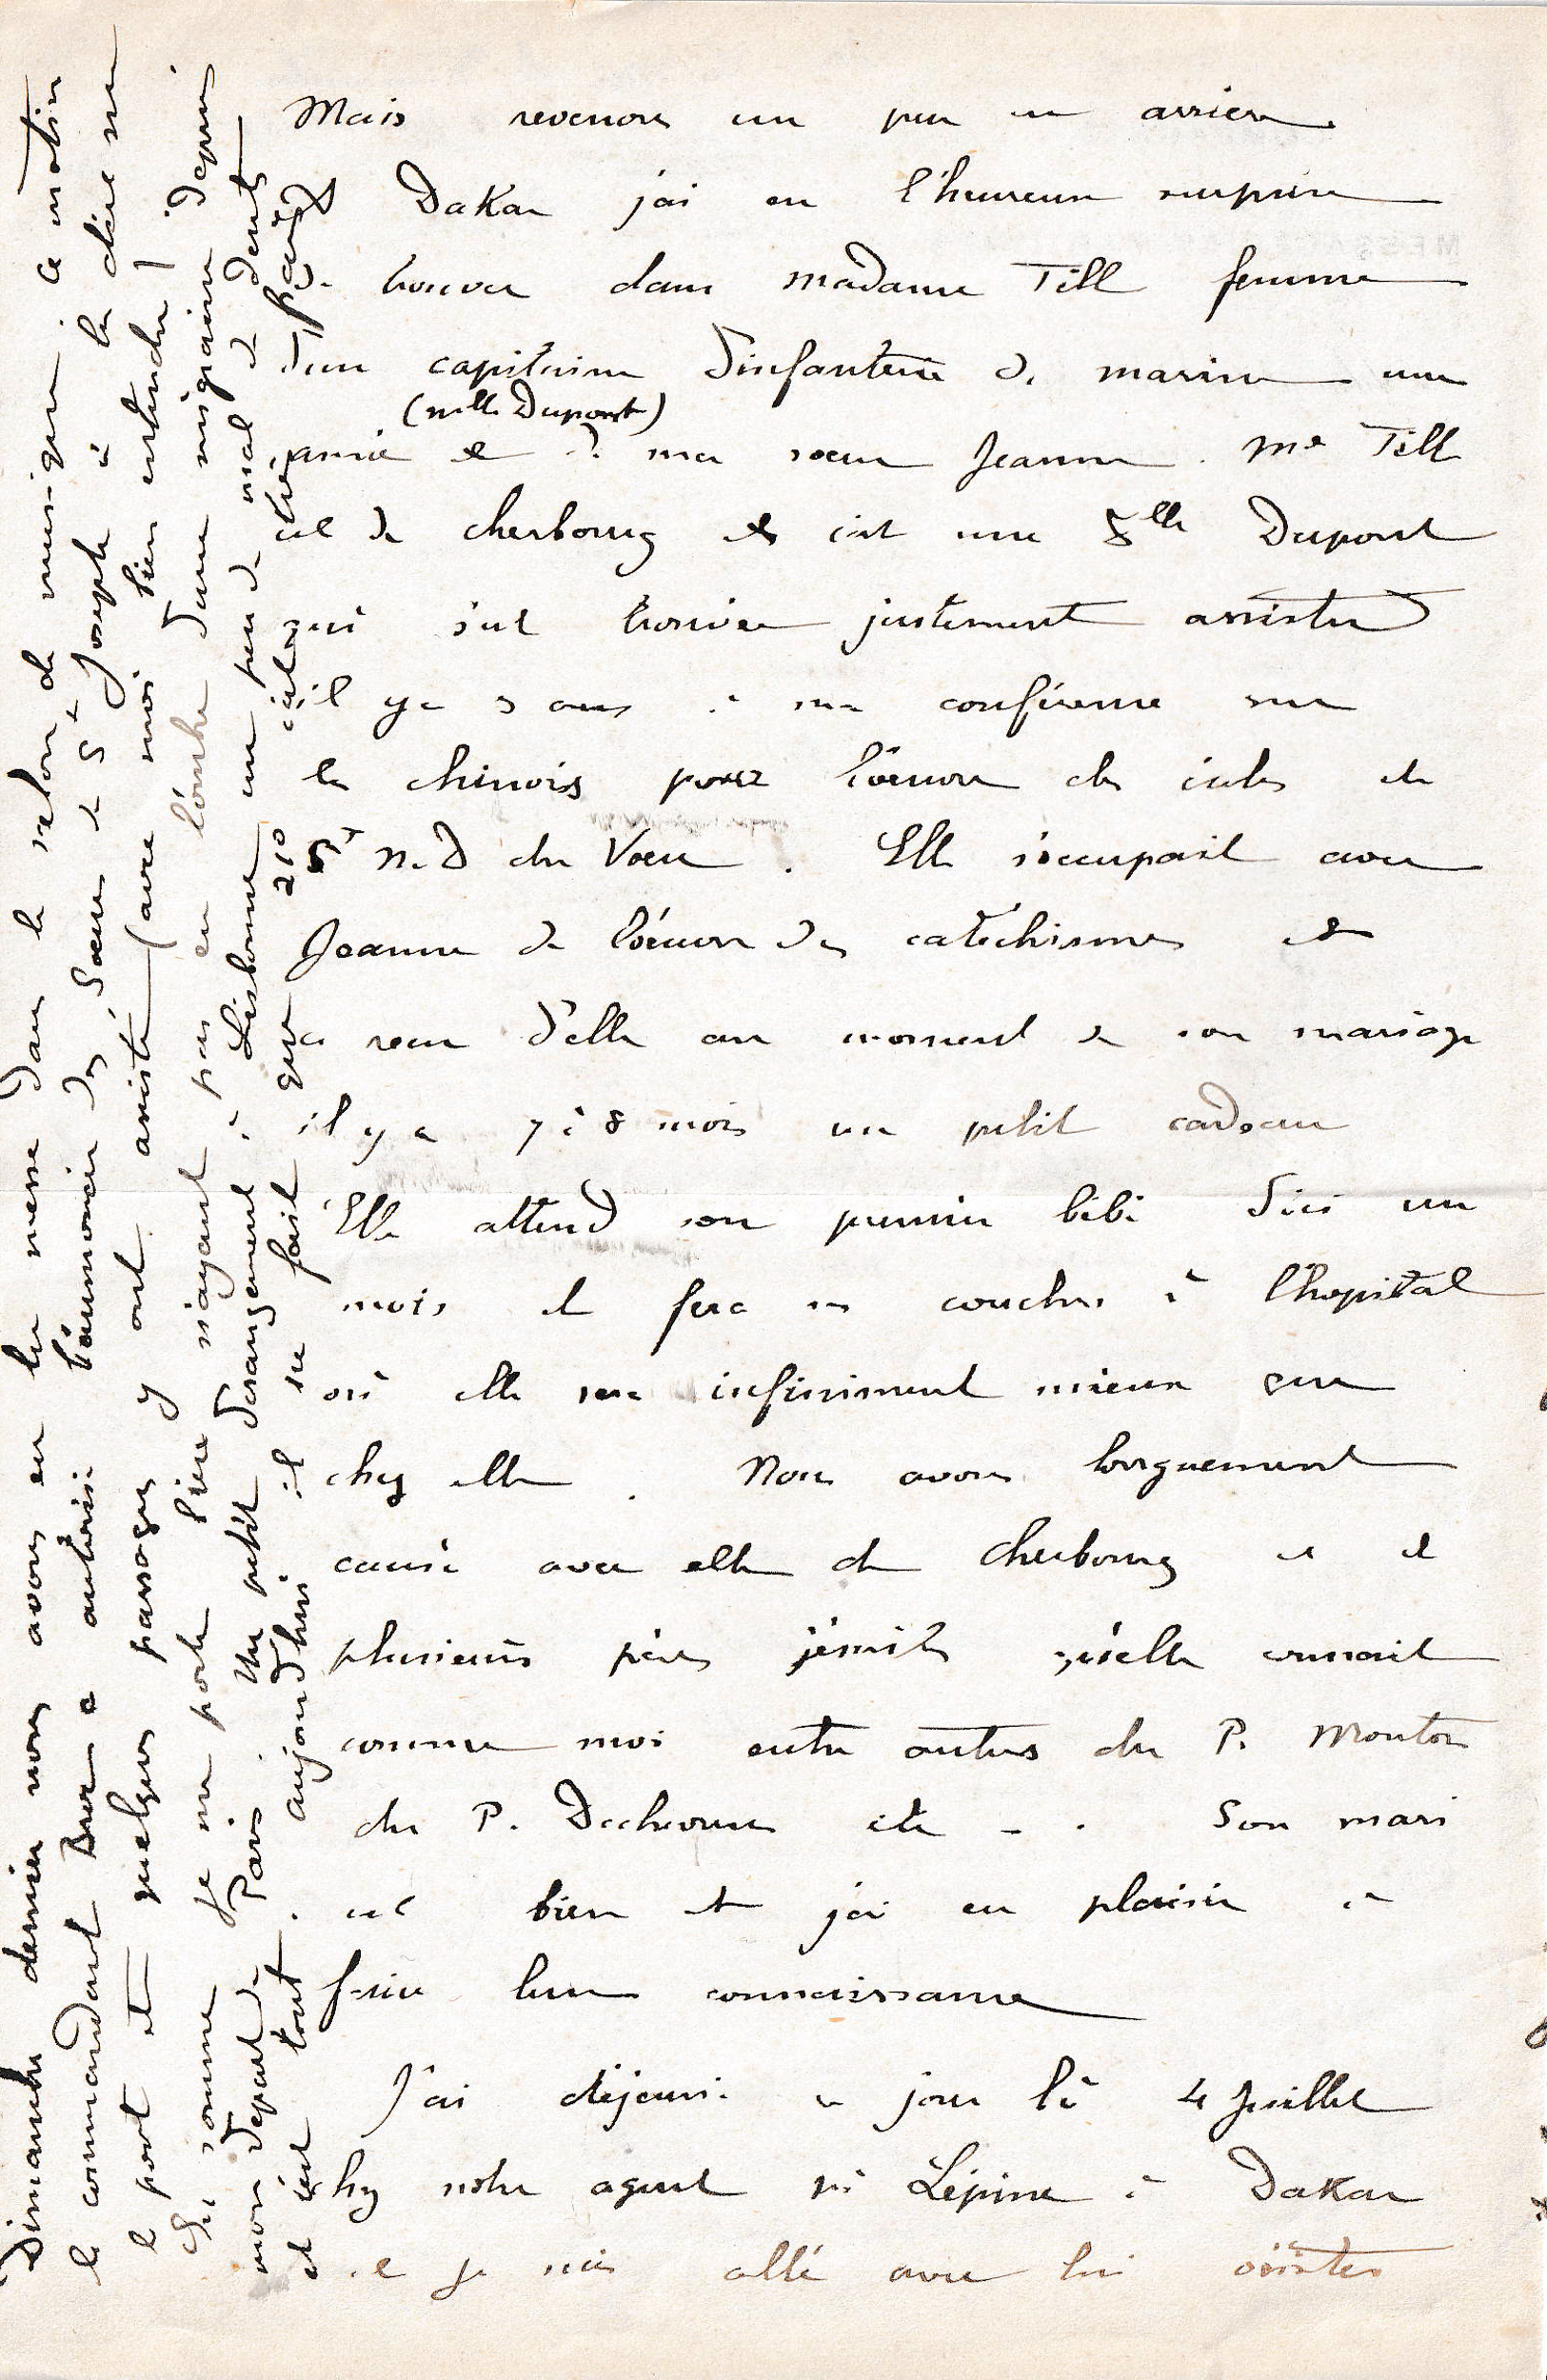 Mais revenons un peu en arrière.
A Dakar j'ai eu l'heureuse surprise
de trouver dans madame Till femme
d'un capitaine d'infanterie de marine une
(melle Dupont)
amie de ma sœur Jeanne. Me Till
est de Cherbourg et c'est une Delle Dupont
qui s'est trouvée justement assister
il y a 3 ans à ma conférence sur
les chinois pour l'œuvre des
St N. D du Vœu. Elle s'occupait avec
Jeanne de l'œuvre des catéchismes et
a reçu d'elle au moment de son mariage
il y a 7 à 8 mois un petit cadeau
Elle attend son premier bébé d'ici un
mois et fera ses couches à l'hopital
où elle sera infiniment mieux que
chez elle. Nous avons longuement
causé avec elle de Cherbourg et de
plusieurs pères jésuites qu'elle connait
comme moi entre autres du P. Mouton
du P. etc - . Son mari
est bien et j'ai eu plaisir à
faire leur connaissance
J'ai déjeuné ce jour là 4 Juillet
chez notre agent Mr Lépine à Dakar
et je suis allé avec lui visiter
Dimanche dernier nous avons eu la messe dans le salon de musique ce matin
le commandant a autorisé l'aumonier des Sœurs de St Joseph à la dire sur
le pont et quelques passagers y ont assisté (avec moi bien entendu)
En somme je me porte bien n'ayant pas eu l'ombre d'une migraine depuis
mon départ de Paris. Un petit dérangement à Lisbonne un peu de mal de dents
et c'est tout. aujourd'hui il ne fait que 210 c'est très frais